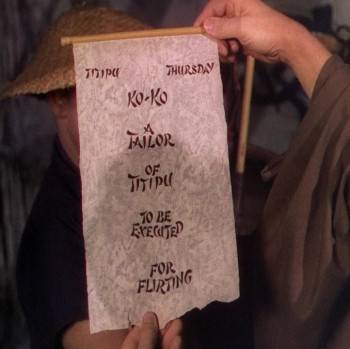 TITIPU THURSDAY
KO-KO
A
TAILOR
OF
TITIPU
TO BE
EXECUTED
FOR
FLIRTING